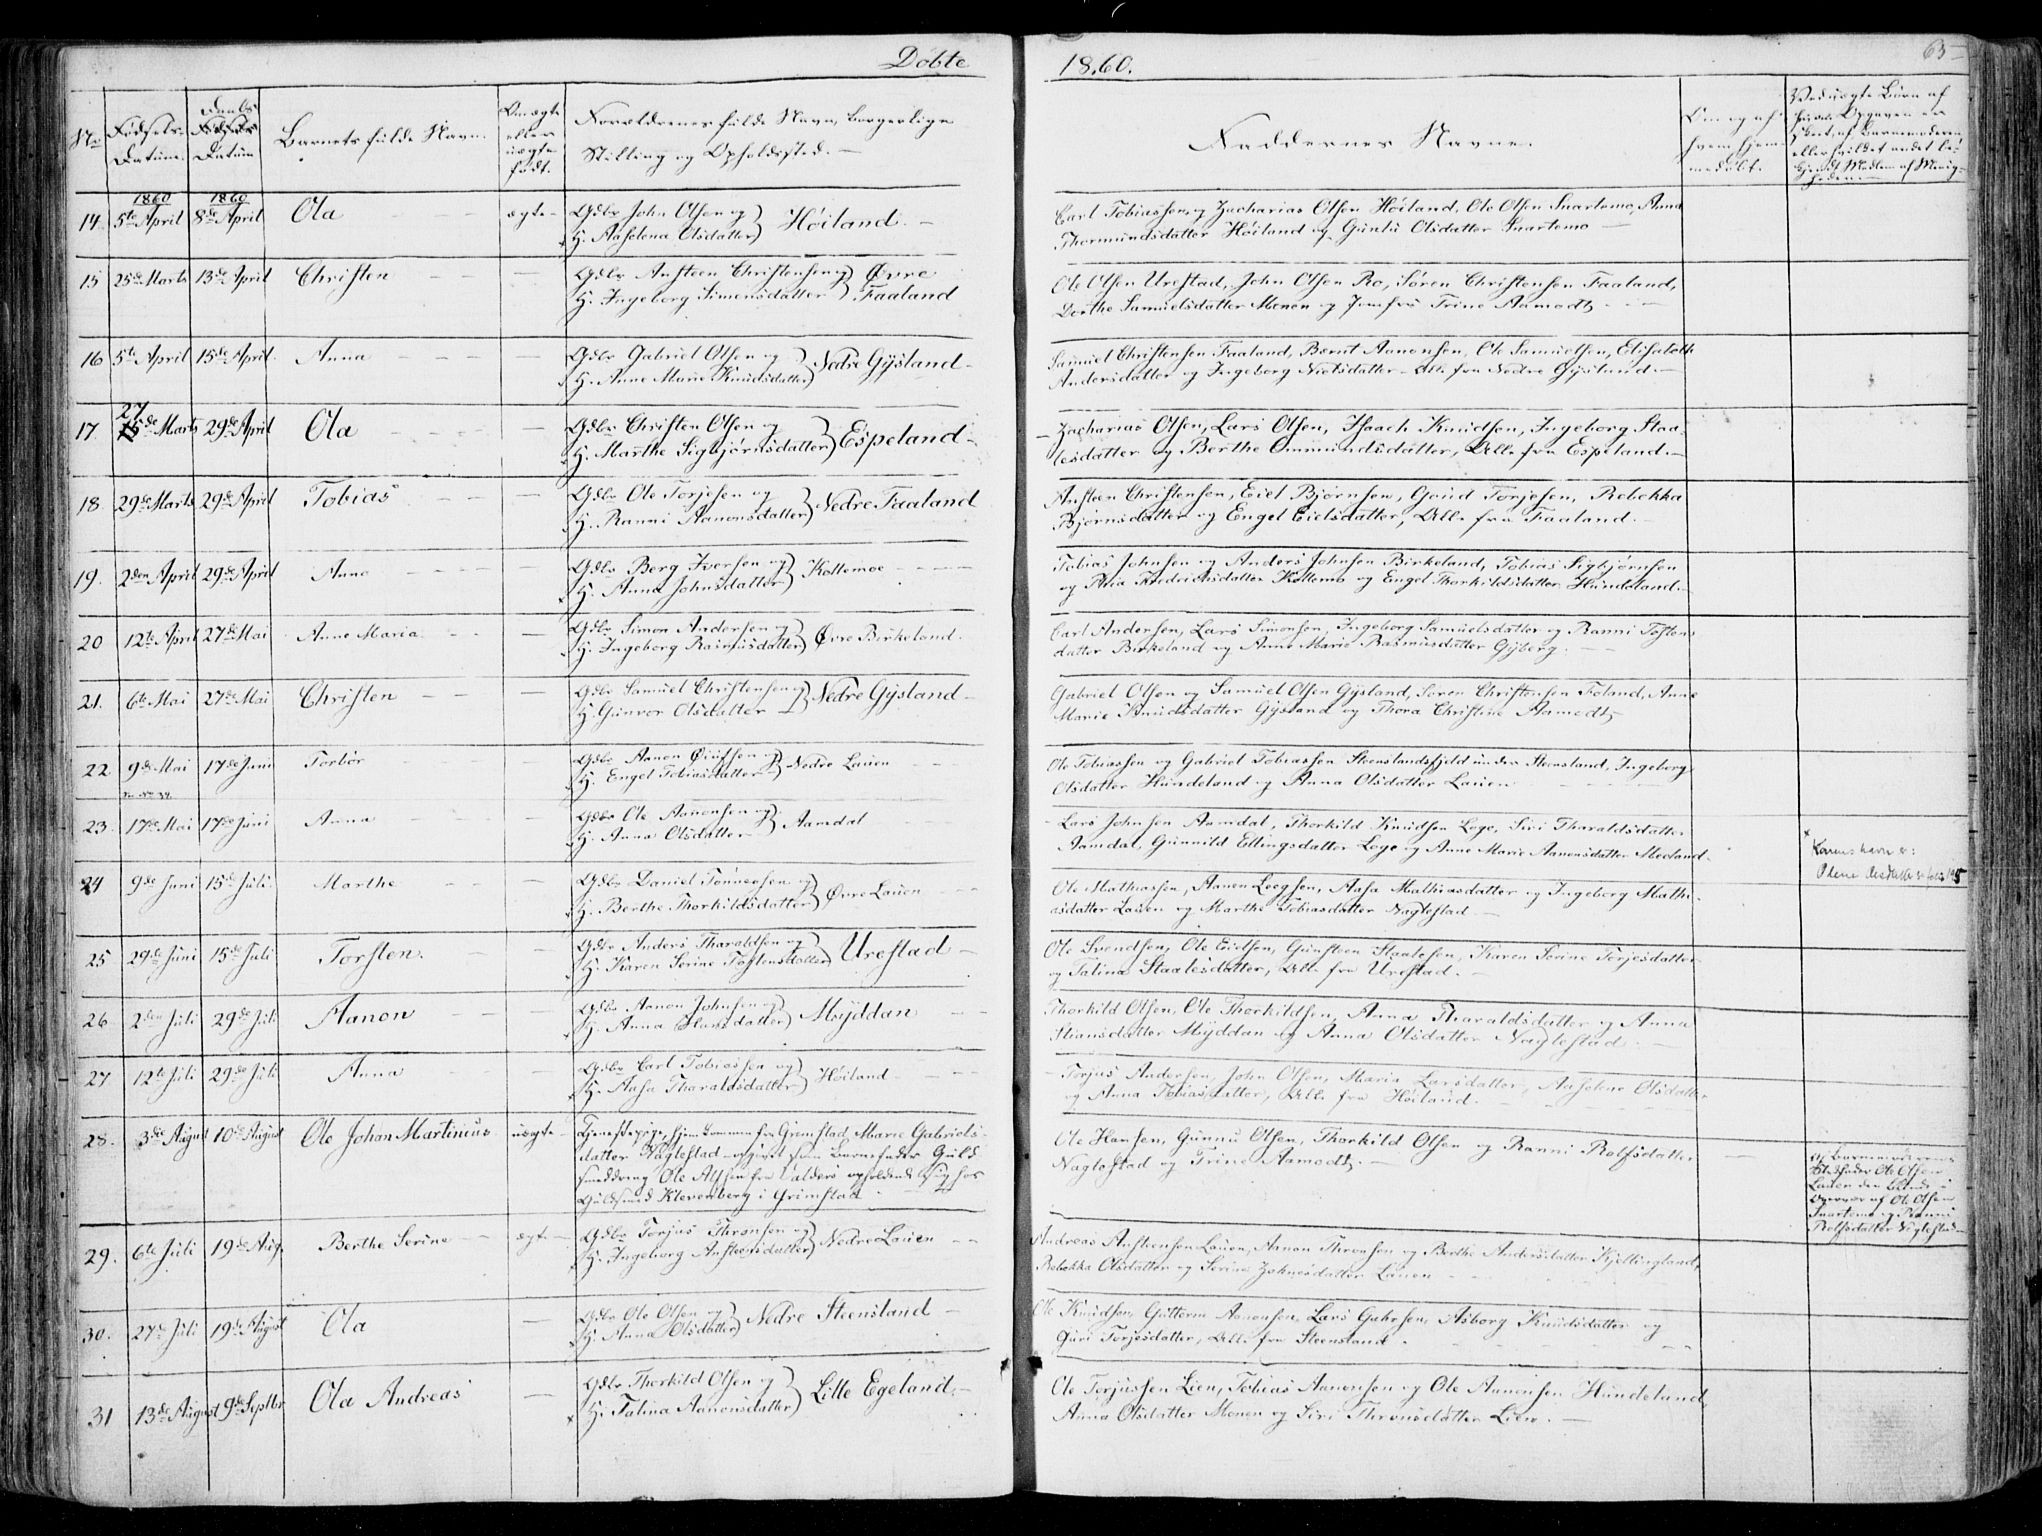 Døbte
1860.
65
No
Fødsels-
Datum.
Daabs
Datum
Barnets fulde Navn.
Om ægte
eller
uægte
født.
Forældrenes fulde Navn, borgerlige
Stilling og Opholdssted.
Faddernes Navne.
Om og af
hvem hjem-
medøbt.
Ved uægte Børn af
14. 5te April 8de April Ola ægte Gdbr John Olsen og
H. Aaselena Olsdatter) Høiland.
Carl Tobiassen og Zacharias Olsen Høiland, Ole Olsen Snartemo, Anna
Thormundsdatter Høiland og Gunild Olsdatter Snartemo
15 25de Marts 13de April Christen Gdbr Ansteen Christensen og) Øvre
H. Ingeborg Simensdatter) Faaland
Ole Olsen Urestad, John Olsen Ro, Søren Christensen Faaland,
Dorthe Samuelsdatter Monen og Jomfru Trine Aamodt
16 5te April 15de April Anna Gdbr Gabriel Olsen og
H. Anne Marie Knudsdatter) Nedre Gysland
Samuel Christensen Faaland, Bernt Aanonsen, Ole Samuelsen, Elisabeth
Andersdatter og Ingeborg Nielsdatter - Alle fra Nedre Gysland.
17 27de Marts 29de April Ola Gdbr Christen Olsen og
H. Marthe Sigbjørnsdatter) Espeland
Zacharias Olsen, Lars Olsen, Isaach Knudsen, Ingeborg Staa-
lesdatter og Berthe Ommundsdatter, Alle fra Espeland.
18. 29de Marts 29de April Tobias Gdbr Ole Torjesen og
H. Ranni Aanonsdatter) Nedre Faaland
Ansteen Christensen, Eiel Bjørnsen, Goud Torjesen, Rebekka
Bjørnsdatter og Engel Eielsdatter, Alle fra Faaland.
19. 2den April 29de April Anne Gdbr Berg Iversen og
H. Anna Johnsdatter) Kollemoe
Tobias Johnsen og Anders Johnsen Birkeland, Tobias Sigbjørnsen
og Fredriksdatter Kollemo og Engel Thorkildsdatter Hundeland.
20 12te April 27de Mai Anne Maria Gdbr Simon Andersen og
H. Ingeborg Rasmusdatter) Øvre Birkeland.
Carl Andersen, Lars Simonsen, Ingeborg Samuelsdatter og Ranni Tosten-
datter Birkeland og Anne Marie Rasmusdatter Gyberg.
21. 6te Mai 27de Mai Christen Gdbr Samuel Christensen og
H. Gunvor Olsdatter) Nedre Gysland
Gabriel Olsen og Samuel Olsen Gysland, Søren Christensen Foland, Anne
Marie Knudsdatter Gysland og Thora Christine Aamodt
22 9de Mai 17de Juni Torbor Gdbr Aanon Øiufsen og
H. Engel Tobiasdatter) Nedre Lauen
Ole Tobiassen og Gabriel Tobiassen Steenslandsfjeld under Steensland, Ingeborg
Olsdatter Hundeland og Anna Olsdatter Lauen
23. 17de Mai 17de Juni Anna Gdbr Ole Aanonsen og
H. Anna Olsdatter) Aamdal
Lars Johnsen Aamdal, Thorkild Knudsen Loge, Siri Tharaldsdatter
Aamdal, Gunnild Ellingsdatter Loge og Anne Marie Aanonsdatter Moeland.
24 9de Juni 15de Juli Marthe Gdbr Daniel Tønnesen og
H. Berthe Thorkildsdatter) Øvre Lauen
Ole Mathiassen, Aanon Loegsen, Aasa Mathiasdatter og Ingeborg Mathi-
asdatter Lauen og Marthe Tobiasdatter Naglestad
25 29de Juni 15de Juli Torsten. Gdbr Anders Tharaldsen og
H. Karen Serine Tostensdatter) Urestad
Ole Svendsen, Ole Eielsen, Gunsteen Staalesen, Karen Serine Torjesdatter
og Talina Staalesdatter, Alle fra Urestad.
26 2den Juli 29de Juli Aanon Gdbr Aanon Johnsen og
H. Anna datter) Myddan
Thorkild Olsen, Ole Thorkildsen, Anna Tharaldsdatter og Anna
Stiansdatter Myddan og Anna Olsdatter Naglestad.
27 12te Juli 29de Juli Anna Gdbr Carl Tobiassen og
H. Aasa Tharaldsdatter) Høiland
Torjus Andersen, John Olsen, Maria Larsdatter, Aaselene Olsdatter
og Anna Tobiasdatter, Alle fra Høiland.
28. 3die August 10de August Ole Johan Martinius uægte Tjenestepige, hjemkommen fra Grimstad, Marie Gabriels-
datter Naglestad - udgivet som Barnefader Guld
smeddreng Ole Alfsen fra Valders opholdende sig hos
Guldsmed Klevenberg i Grimstad
Ole Hansen, Gunnu Olsen, Thorkild Olsen og Ranni Rolfsdatter
Naglestad og Trine Aamodt.
af Barnemoderens
Stedfader Ole Olsen
Lauen den blinde i
Overvær af Ole Olsen
Snartemo og Ranni
Rolfsdatter Naglestad
29. 6te Juli 19de Aug. Berthe Serine ægte Gdbr Torjus Thronsen og
H. Ingeborg Ansteensdatter) Nedre Lauen
Andreas Ansteensen Lauen, Aanon Thronsen og Berthe Andersdatter Kjellingland,
Rebekka Olsdatter og Serine Johnesdatter Lauen
30. 27de Juli 19de August Ola Gdbr Ole Olsen og
H. Anna Olsdatter) Nedre Steensland
Ole Knudsen, Guttorm Aanonsen, Lars Gahrsen, Asborg Knudsdatter og
Guri Torjesdatter, Alle fra Steensland.
31 13de August 9de Septbr Ola Andreas Gdbr Thorkild Olsen og
H. Talina Aanonsdatter) Lille Egeland.
Ole Torjussen Lien, Tobias Aanonsen og Ole Aanonsen Hundeland,
Anna Olsdatter Monen og Siri Thronsdatter Lien.